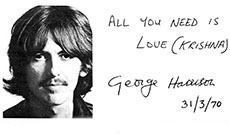 ALL YOU NEED IS
LOVE (KRISHNA)
George Harrison
31/3/70